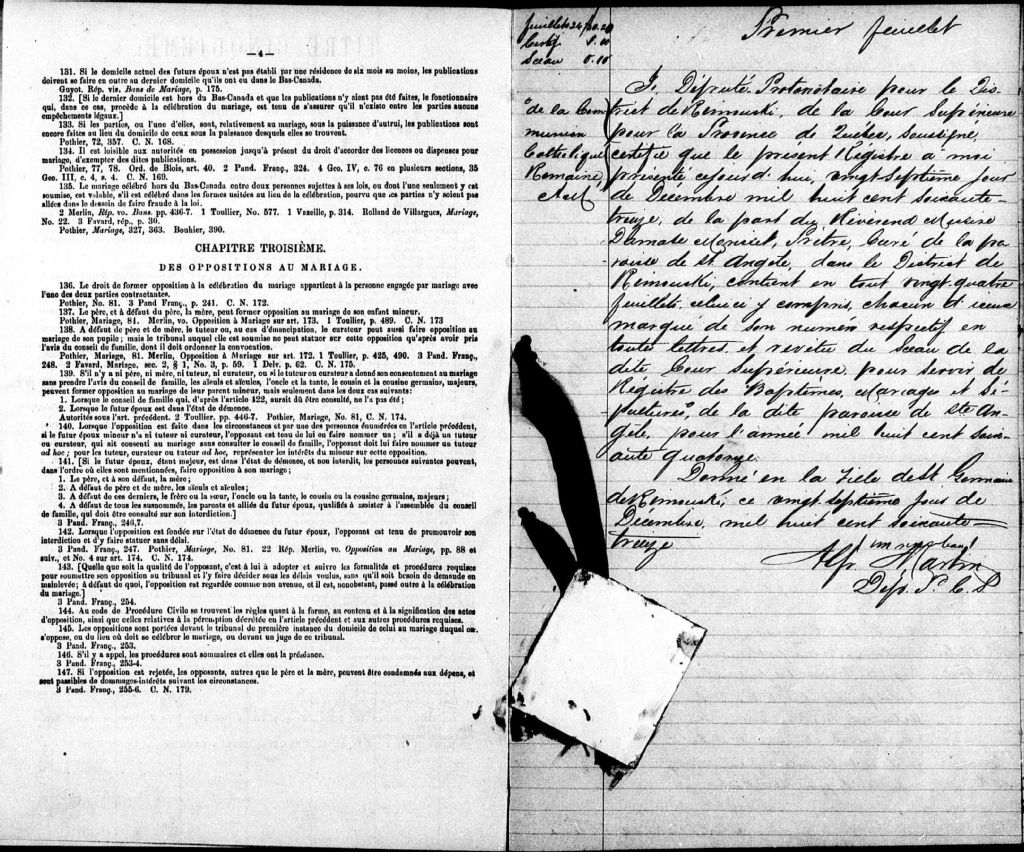 131. Si le domicile actuel des futurs époux n'est pas établi par une résidence de six mois au moins, les publications
doivent se faire en outre au dernier domicile qu'ils ont eu dans le Bas-Canada.
Guyot. Rép. vis. Bans de Mariage, p. 175.
132. [Si le dernier domicile est hors du Bas-Canada et que les publications n'y aient pas été faites, le fonctionnaire
qui, dans ce cas, procède à la célébration du mariage, est tenu de s'assurer qu'il n'existe entre les parties aucuns
empêchements légaux.]
133. Si les parties, ou l'une d'elles, sont, relativement au mariage, sous la puissance d'autrui, les publications sont
encore faites au lieu du domicile de ceux sous la puissance desquels elles se trouvent.
Pothier, 72, 357. C. N. 168.
134. Il est loisible aux autorités en possession jusqu'à présent du droit d'accorder des licences ou dispenses pour
mariage, d'exempter des dites publications.
Pothier, 77, 78. Ord. de Blois, art. 40. 2 Pand. Franç., 324. 4 Geo. IV, c. 76 en plusieurs sections, 35
Geo. III, c. 4, s. 4. C. N. 169.
135. Le mariage célébré hors du Bas-Canada entre deux personnes sujettes à ses lois, ou dont l'une seulement y est
soumise, est valable, s'il est célébré dans les formes usitées au lieu de la célébration, pourvu que les parties n'y soient pas
allées dans le dessein de faire fraude à la loi.
2 Merlin, Rép. vo. Bans. pp. 436-7. 1 Toullier, No. 577. 1 Vazeille, p. 314. Rolland de Villargues, Mariage,
No. 22. 3 Favard, rép., p. 30.
Pothier, Mariage, 327, 363. Bouhier, 390.
CHAPITRE TROISIÈME.
DES OPPOSITIONS AU MARIAGE.
136. Le droit de former opposition à la célébration du mariage appartient à la personne engagée par mariage avec
l'une des deux parties contractantes.
Pothier, No. 81. 3 Pand Franç., p. 241. C. N. 172.
137. Le père, et à défaut du père, la mère, peut former opposition au mariage de son enfant mineur.
Pothier, Mariage, 81. Merlin, vo. Opposition à Mariage sur art. 173. 1 Toullier, p. 489. C. N. 173
138. A défaut de père et de mère, le tuteur ou, au cas d'émancipation, le curateur peut aussi faire opposition au
mariage de son pupille; mais le tribunal auquel elle est soumise ne peut statuer sur cette opposition qu'après avoir pris
l'avis du conseil de famille, dont il doit ordonner la convocation.
Pothier, Mariage, 81. Merlin, Opposition à Mariage sur art. 172. 1 Toullier, p. 425, 490. 3 Pand. Franç.,
248. 2 Favard, Mariage, sec. 2, § 1, No. 3, p. 59. 1 Delv. p. 62. C. N. 175.
139. S'il n'y a ni père, ni mère, ni tuteur, ni curateur, ou si le tuteur ou curateur a donné son consentement au mariage
sans prendre l'avis du conseil de famille, les aïeuls et aïeules, l'oncle et la tante, le cousin et la cousine germains, majeurs,
peuvent former opposition au mariage de leur parent mineur, mais seulement dans les deux cas suivants:
1. Lorsque le conseil de famille qui, d'après l'article 122, aurait dû être consulté, ne l'a pas été;
2. Lorsque le futur époux est dans l'état de démence.
Autorités sous l'art. précédent. 2 Toullier, pp. 446-7. Pothier, Mariage, No. 81, C. N. 174.
140. Lorsque l'opposition est faite dans les circonstances et par une des personnes énumérées en l'article précédent,
si le futur époux mineur n'a ni tuteur ni curateur, l'opposant est tenu de lui en faire nommer un; s'il a déjà un tuteur
ou curateur, qui ait consenti au mariage sans consulter le conseil de famille, l'opposant doit lui faire nommer un tuteur
ad hoc; pour les tuteur, curateur ou tuteur ad hoc, représenter les intérêts du mineur sur cette opposition.
141. [Si le futur époux, étant majeur, est dans l'état de démence, et non interdit, les personnes suivantes peuvent,
dans l'ordre où elles sont mentionnées, faire opposition à son mariage;
1. Le père, et à son défaut, la mère;
2. A défaut de père et de mère, les aïeuls et aïeules;
3. A défaut de ces derniers, le frère ou la sœur, l'oncle ou la tante, le cousin ou la cousine germains, majeurs;
4. A défaut de tous les susnommés, les parents et alliés du futur époux, qualifiés à assister à l'assemblée du conseil
de famille, qui doit être consulté sur son interdiction.]
3 Pand. Franç., 246,7.
142. Lorsque l'opposition est fondée sur l'état de démence du futur époux, l'opposant est tenu de promouvoir son
interdiction et d'y faire statuer sans délai.
3 Pand. Franç., 247. Pothier, Mariage, No. 81. 22 Rép. Merlin, vo. Opposition au Mariage, pp. 88 et
suiv., et No. 4 sur art. 174. C. N. 174.
143. [Quelque soit la qualité de l'opposant, c'est à lui à adopter et suivre les formalités et procédures requises
pour soumettre son opposition au tribunal et l'y faire décider sous les délais voulus, sans qu'il soit besoin de demande en
mainlevée; à défaut de quoi, l'opposition est regardée comme non avenue, et il est, nonobstant, passé outre à la célébration
du mariage.]
3 Pand. Franç., 254.
144. Au code de Procédure Civile se trouvent les règles quant à la forme, au contenu et à la signification des actes
d'opposition, ainsi que celles relatives à la péremption décrétée en l'article précédent et aux autres procédures requises.
145. Les oppositions sont portées devant le tribunal de première instance du domicile de celui au mariage duquel on
s'oppose, ou du lieu où doit se célébrer le mariage, ou devant un juge de ce tribunal.
3 Pand. Franç., 253.
146. S'il y a appel, les procédures sont sommaires et elles ont la préséance.
3 Pand. Franç., 253-4.
147. Si l'opposition est rejetée, les opposants, autres que le père et la mère, peuvent être condamnés aux dépens, et
sont passibles de dommages-intérêts suivant les circonstances.
3 Pand. Franç., 255-6. C. N. 179.
feuillets 24
Certif
Sceau 0.10
de la Com
munion
Catholique
Romaine
Premier feuillet
Je, Député-Protonotaire pour le Dis
trict de Rimouski, de la Cour Supérieure
pour la Province de Québec, soussigné,
certifie que le présent Régistre a moi
présenté cejourd'hui, vingt septième jour
de Décembre mil huit cent soixante-
treize, de la part du Révérend Messire
Damase Morisset, Prêtre, Curé de la pa
roisse de St Angèle, dans le District de
Rimouski, contient en tout vingt quatre
feuillets, celui ci y compris, chacun d'iceux
marqué de son numéro respectif en
toutes lettres, et revêtu du Sceau de la
dite Cour Supérieure, pour servir de
Régistre des Baptêmes, Mariages et Sé-
pultures, de la dite paroisse de Ste An-
gèle, pour l'année mil huit cent soix-
ante quatorze.
Donné en la Ville de St Germain
de Rimouski, ce vingt septième jour de
Décembre, mil huit cent soixante
treize
Alp. Martin
Dép. P. C. S